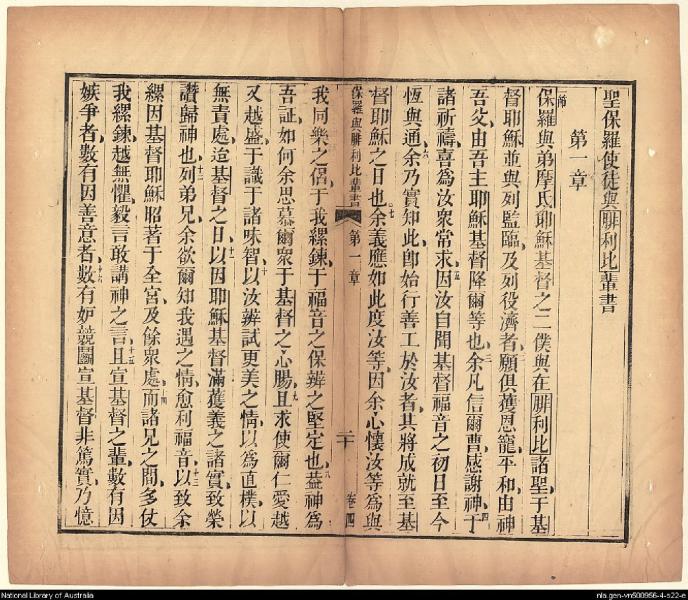 聖保羅使徒與腓利比輩書
第一章
保羅與弟摩氏耶穌基督之二僕與在腓利比諸聖于基
督耶穌並與列監臨及列役濟者願俱獲恩寵平和由神
吾父由吾主耶穌基督降爾等也余凡信爾曹感謝神于
諸祈禱喜爲汝衆常求因汝自聞基督福音之初日至今
恆與通余乃實知此卽始行善工於汝者其將成就至基
督耶穌之日也余義應如此度汝等因余心懷汝等爲與
保羅與腓利比輩書 第一章 二十 卷四
我同樂之侶于我縲鍊于福音之保辦之堅定也蓋神爲
吾証如何余思慕爾衆于基督之心腸且求使爾仁愛越
又越盛于識于諸味智以汝辦試更美之情以爲直樸以
無責處迨基督之日以因耶穌基督滿獲義之諸實致榮
讚歸神也列弟兄余欲爾知我遇之情愈利福音以致余
縲因基督耶穌昭著于全宮及餘衆處而諸兄之間多仗
我縲鍊越無懼毅言敢講神之言且宣基督之輩數有因
嫉爭者數有因善意者數有妒競鬪宣基督非篤實乃憶
National Library of Australia
nla.gen-vn500956-4-s22-e